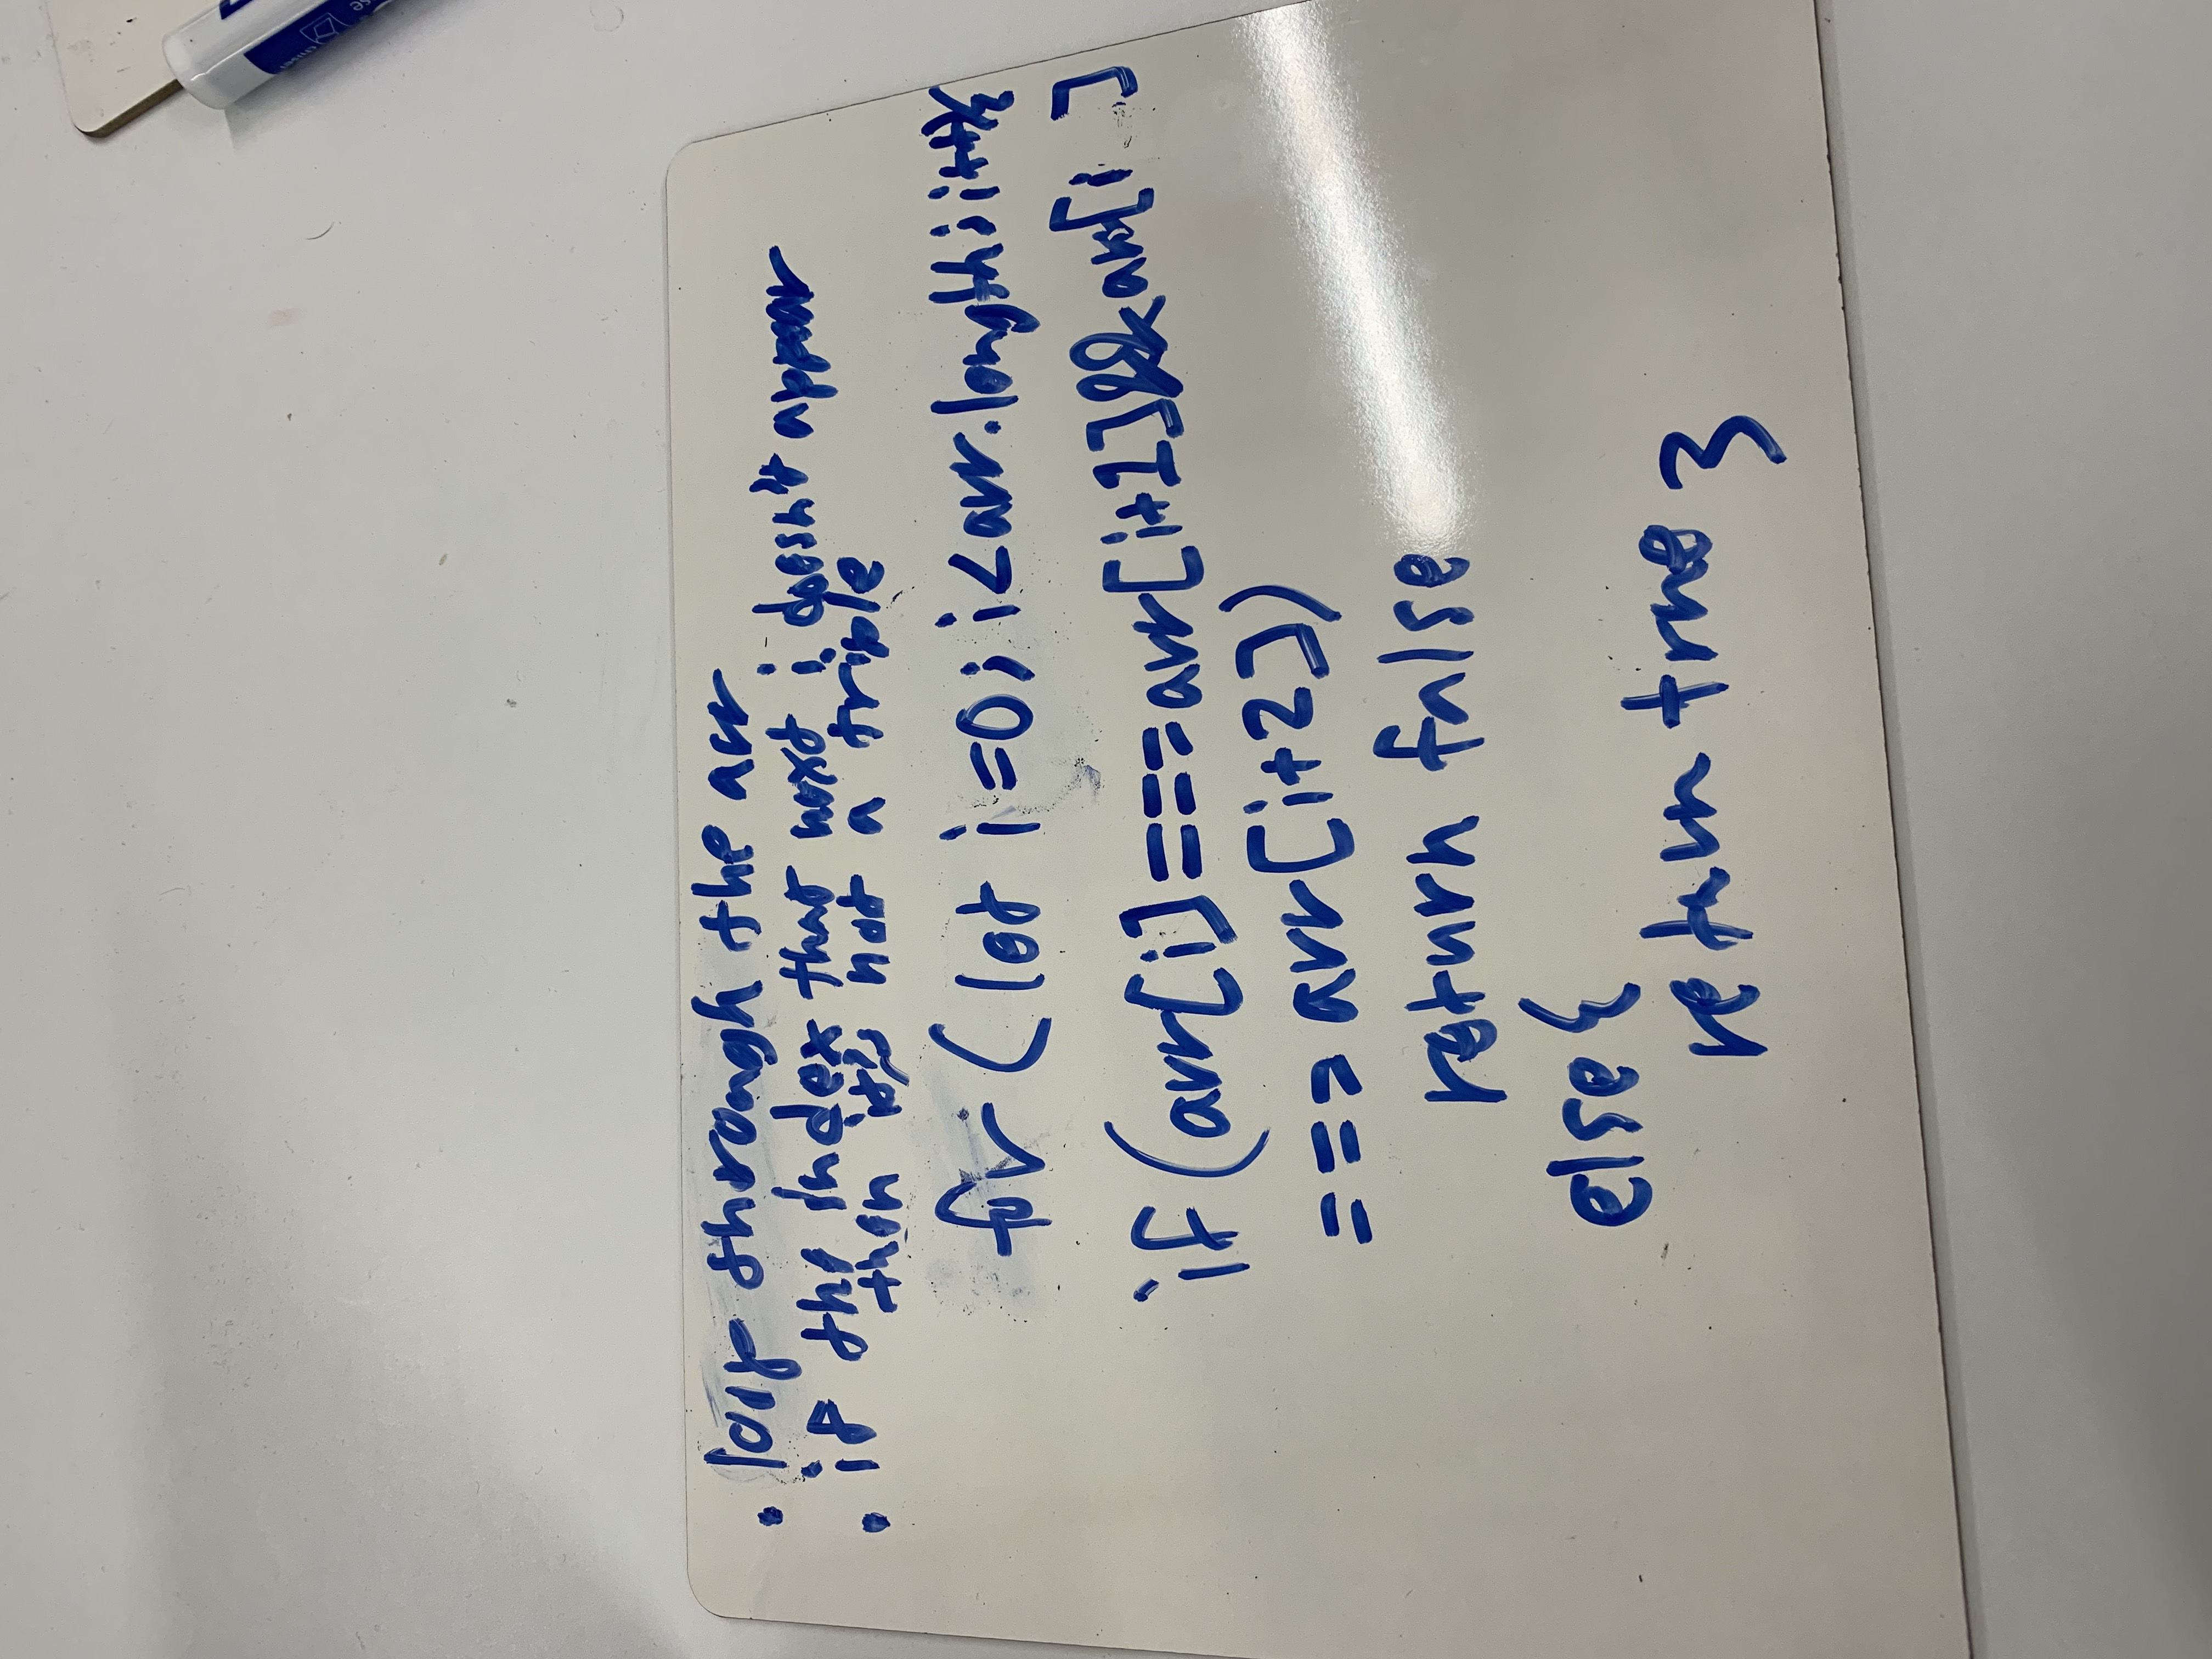 • loop through the arr
• if the index that next i doesn't appear
then it's not a triple
for (let i=0; i<arr.length; i++){
if (arr[i]===arr[i+1]&&arr[i ]
===arr[i+2])
return false
else{
return true }